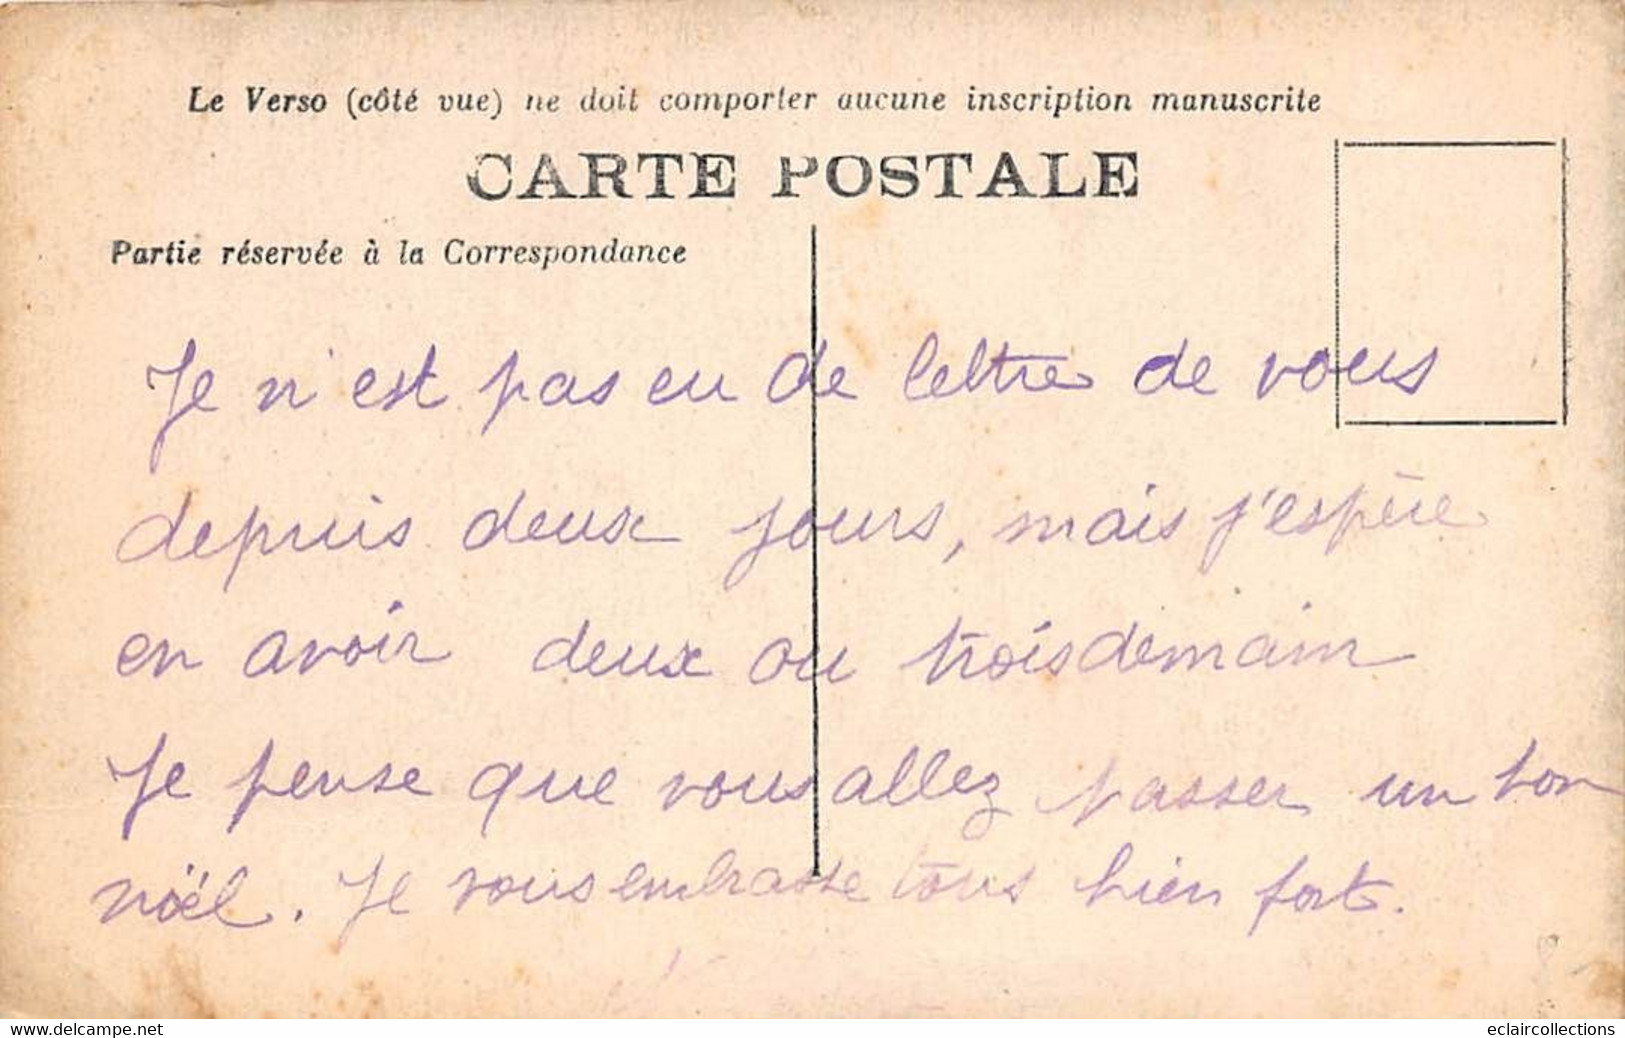 Le Verso (côté vue) ne doit comporter aucune inscription manuscrite
CARTE POSTALE
Partie réservée à la Correspondance
Je n'est pas eu de lettre de vous
depuis deux jours, mais j'espère
en avoir deux ou trois demain
Je pense que vous allez passer un bon
noël. Je vous embrasse tous bien fort.
www.delcampe.net
eclaircollections